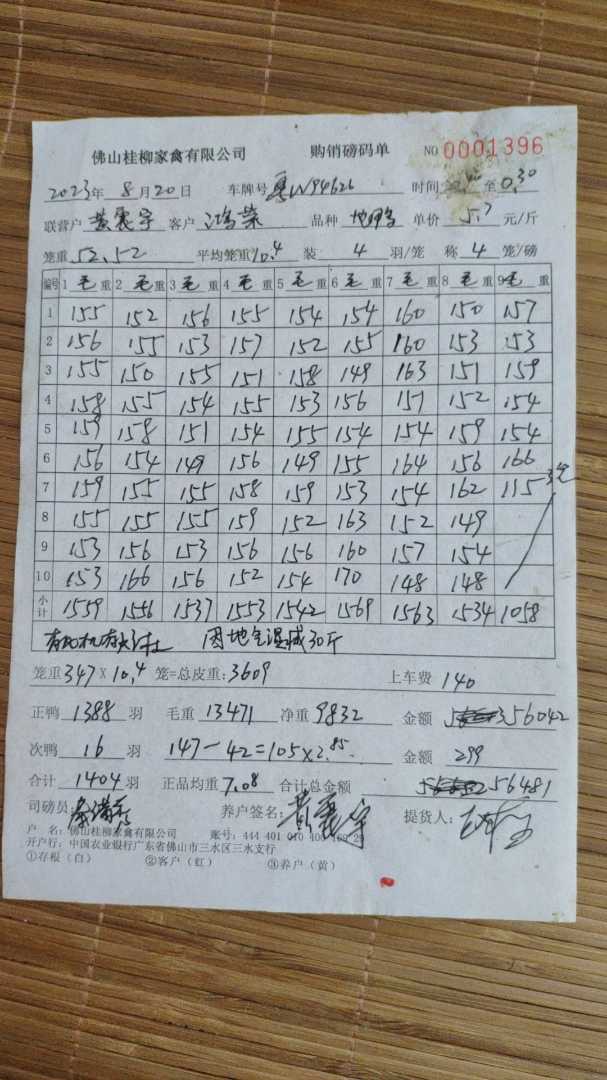 佛山桂柳家禽有限公司 购销磅码单 NO 0001396
2023年 8月20日 车牌号 粤W94626 时间 至0:30
联营户 黄震宇 客户 鸿荣 品种 地鸭 单价 5.7 元/斤
笼重 52.52 平均笼重 10.4 装 4 羽/笼 称 4 笼/磅
编号 1 毛重 2 毛重 3 毛重 4 毛重 5 毛重 6 毛重 7 毛重 8 毛重 9 毛重
1 155 152 156 155 154 154 160 150 157
2 156 155 153 157 152 155 160 153 153
3 155 150 155 151 158 149 163 151 159
4 158 155 154 155 153 156 151 152 154
5 159 158 151 154 155 154 154 159 154
6 156 154 149 156 149 155 164 156 166
7 159 155 155 158 159 153 154 162 115 3笼
8 155 155 155 159 152 163 152 149
9 153 156 153 156 156 160 157 154
10 153 166 156 152 154 170 148 148
小计 1559 1556 1537 1553 1542 1569 1563 1534 1058
因地仓湿减30斤
笼重 347 × 10.4 笼=总皮重:3609 上车费 140
正鸭 1388 羽 毛重 13471 净重 9832 金额 56042
次鸭 16 羽 147-42=105×2.85 金额 299
合计 1404 羽 正品均重 7.08 合计总金额 56481
司磅员: 养户签名: 黄震宇 提货人:
户 名:佛山桂柳家禽有限公司 账号:444 401 010 400
开户行:中国农业银行广东省佛山市三水区三水支行
①存根(白) ②客户(红) ③养户(黄)